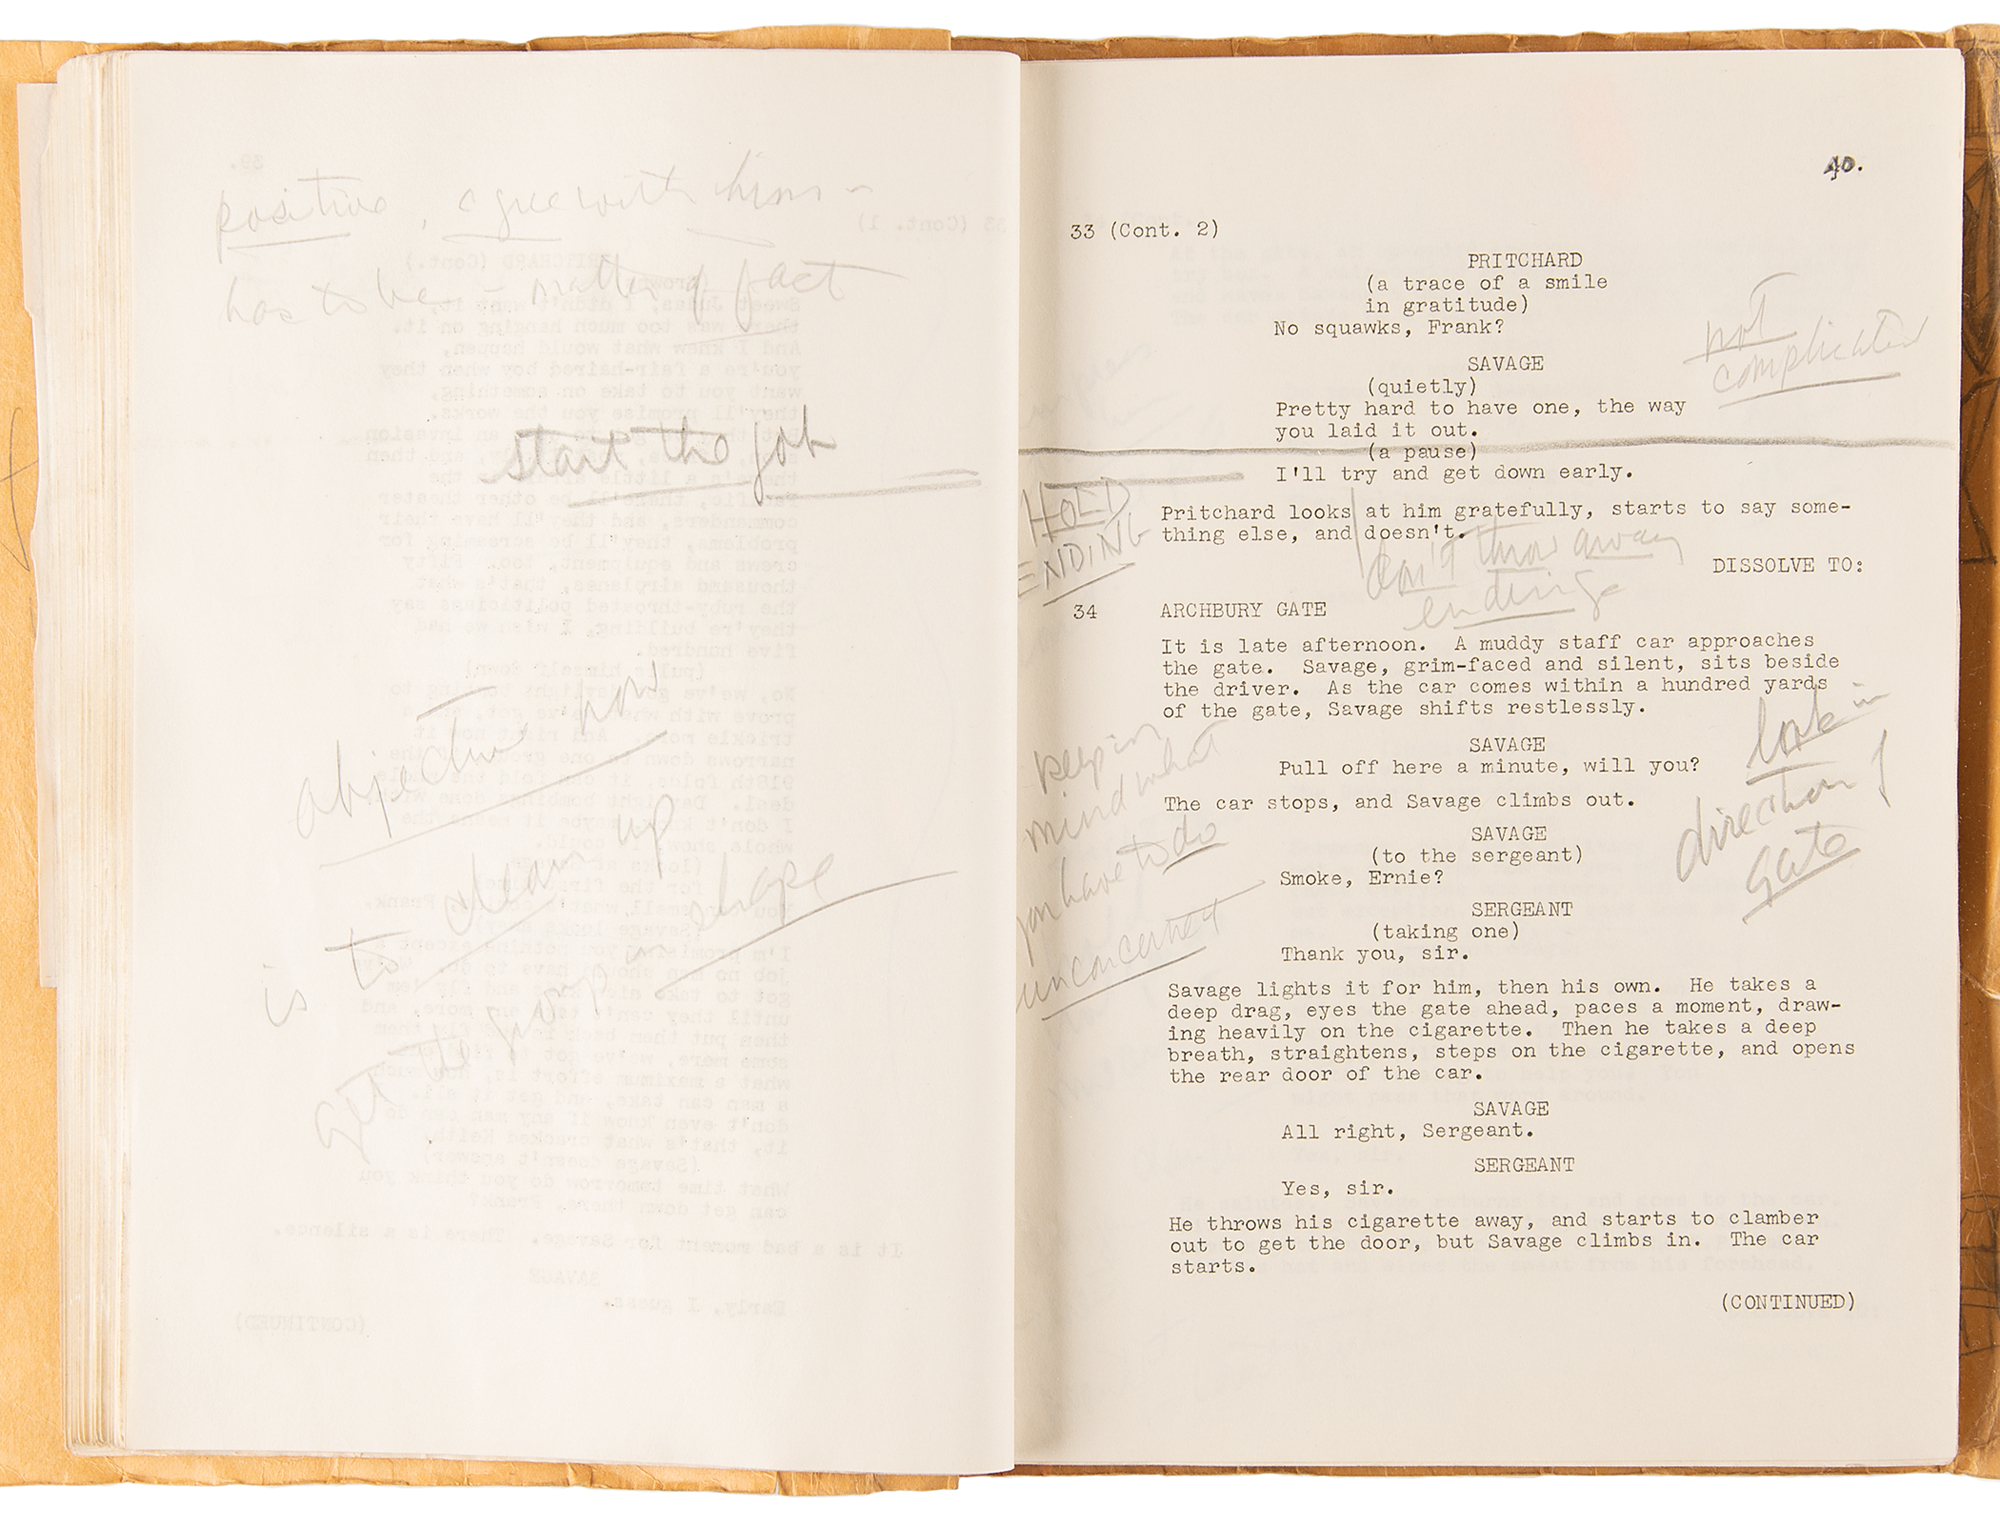 positive, agree with him -
has to be - matter of fact
start the job
objective now
is to clean up
get group in shape
40.
33 (Cont. 2)
PRITCHARD
(a trace of a smile
in gratitude)
No squawks, Frank?
not
complicated
SAVAGE
(quietly)
Pretty hard to have one, the way
you laid it out.
(a pause)
I'll try and get down early.
HOLD
ENDING
Pritchard looks at him gratefully, starts to say some-
thing else, and doesn't.
don't throw away
endings
DISSOLVE TO:
34 ARCHBURY GATE
It is late afternoon. A muddy staff car approaches
the gate. Savage, grim-faced and silent, sits beside
the driver. As the car comes within a hundred yards
of the gate, Savage shifts restlessly.
look in
direction of
gate
keep in
mind what
you have to do
unconcerned
SAVAGE
Pull off here a minute, will you?
The car stops, and Savage climbs out.
SAVAGE
(to the sergeant)
Smoke, Ernie?
SERGEANT
(taking one)
Thank you, sir.
Savage lights it for him, then his own. He takes a
deep drag, eyes the gate ahead, paces a moment, draw-
ing heavily on the cigarette. Then he takes a deep
breath, straightens, steps on the cigarette, and opens
the rear door of the car.
SAVAGE
All right, Sergeant.
SERGEANT
Yes, sir.
He throws his cigarette away, and starts to clamber
out to get the door, but Savage climbs in. The car
starts.
(CONTINUED)